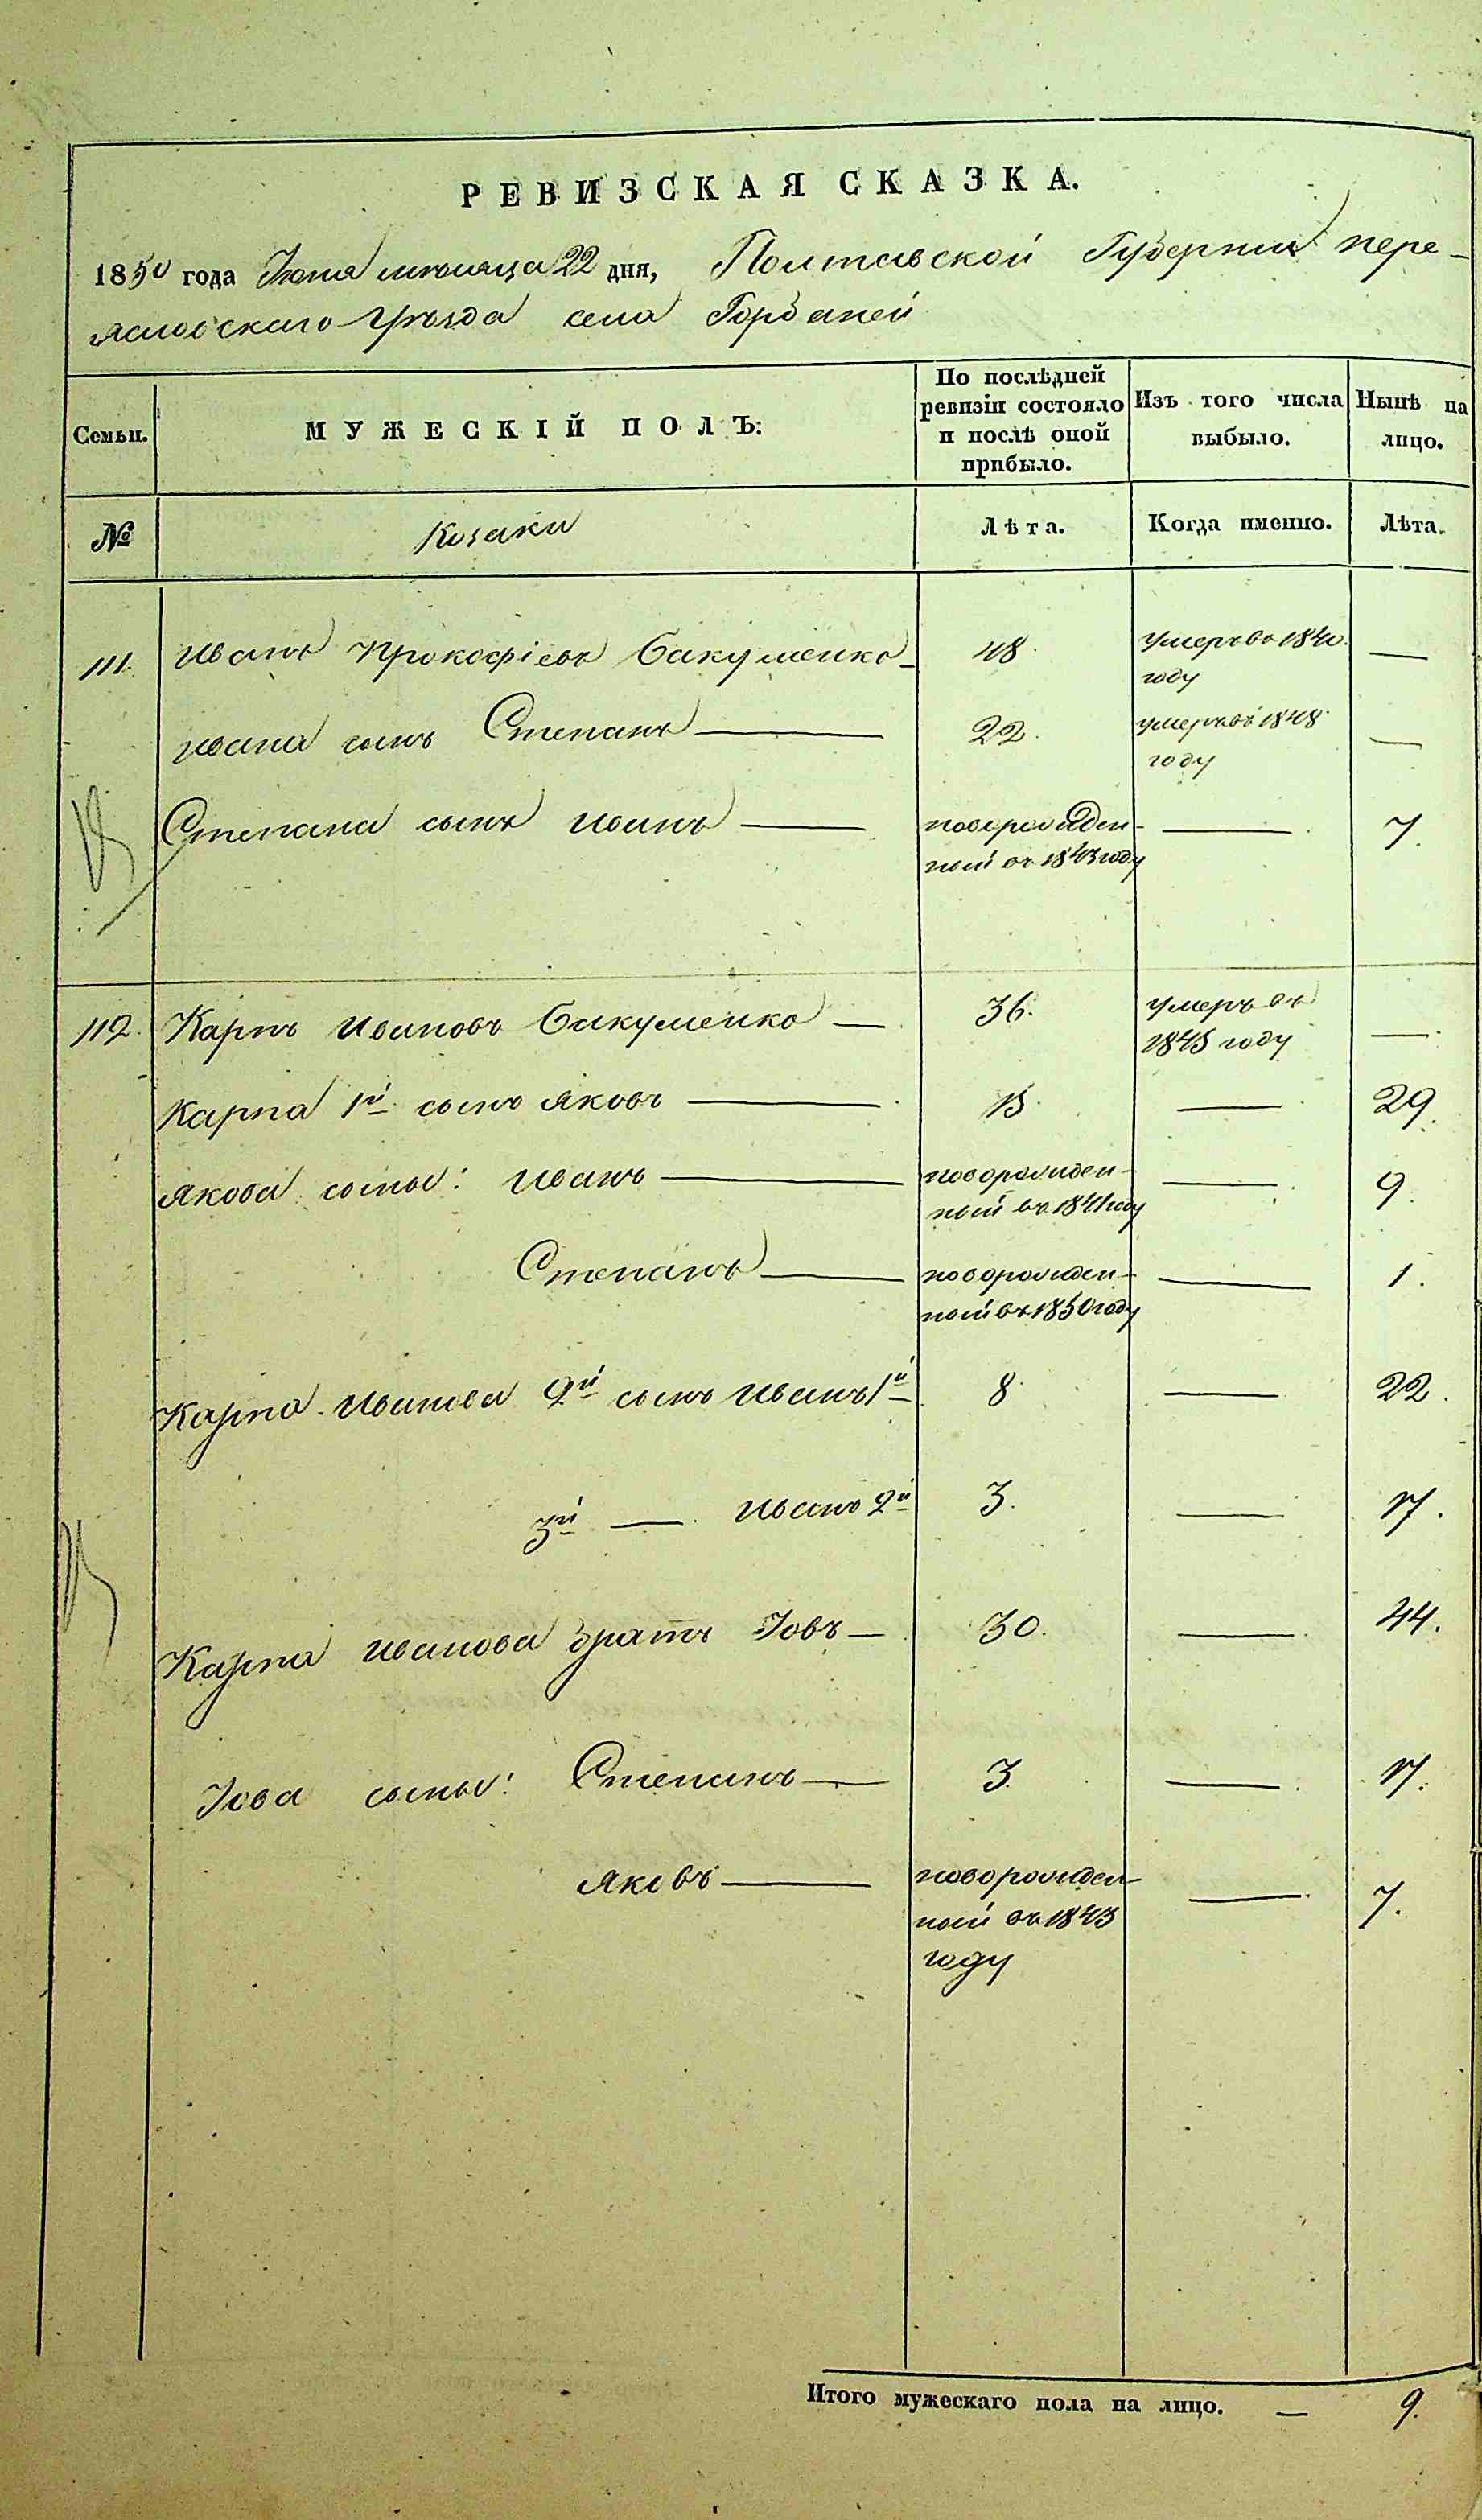 РЕВИЗСКАЯ СКАЗКА.
1850 года Іюня мѣсяца 22 дня, Полтавской Губерніи пере-
яславскаго уѣзда села Горбаней
Семьи. МУЖЕСКІЙ ПОЛЪ: По послѣдней ревизіи состояло и послѣ оной прибыло. Изъ того числа выбыло. Нынѣ на лицо.
№ Козаки Лѣта. Когда именно. Лѣта.
111. Иванъ Прокофіевъ Бакуменко 48. умеръ въ 1840. —
году
Ивана сынъ Степанъ — 22. умеръ въ 1848 —
году
Степана сынъ Иванъ — новорожден- — 7.
ный въ 1843 году
112. Карпъ Ивановъ Бакуменко — 36. умеръ въ —
1845 году
Карпа 1й сынъ Яковъ — 15. — 29.
Якова сыны: Иванъ — новорожден- — 9.
ный въ 1841 году
Степанъ — новорожден- — 1.
ный въ 1850 году
Карпа Иванова 2й сынъ Иванъ 1й 8. — 22.
3й — Иванъ 2й 3. — 17.
Карпа Иванова братъ Іовъ — 30. — 44.
Іова сыны: Степанъ — 3. — 17.
Яковъ — новорожден- — 7.
ный въ 1843
году
Итого мужескаго пола на лицо. — 9.